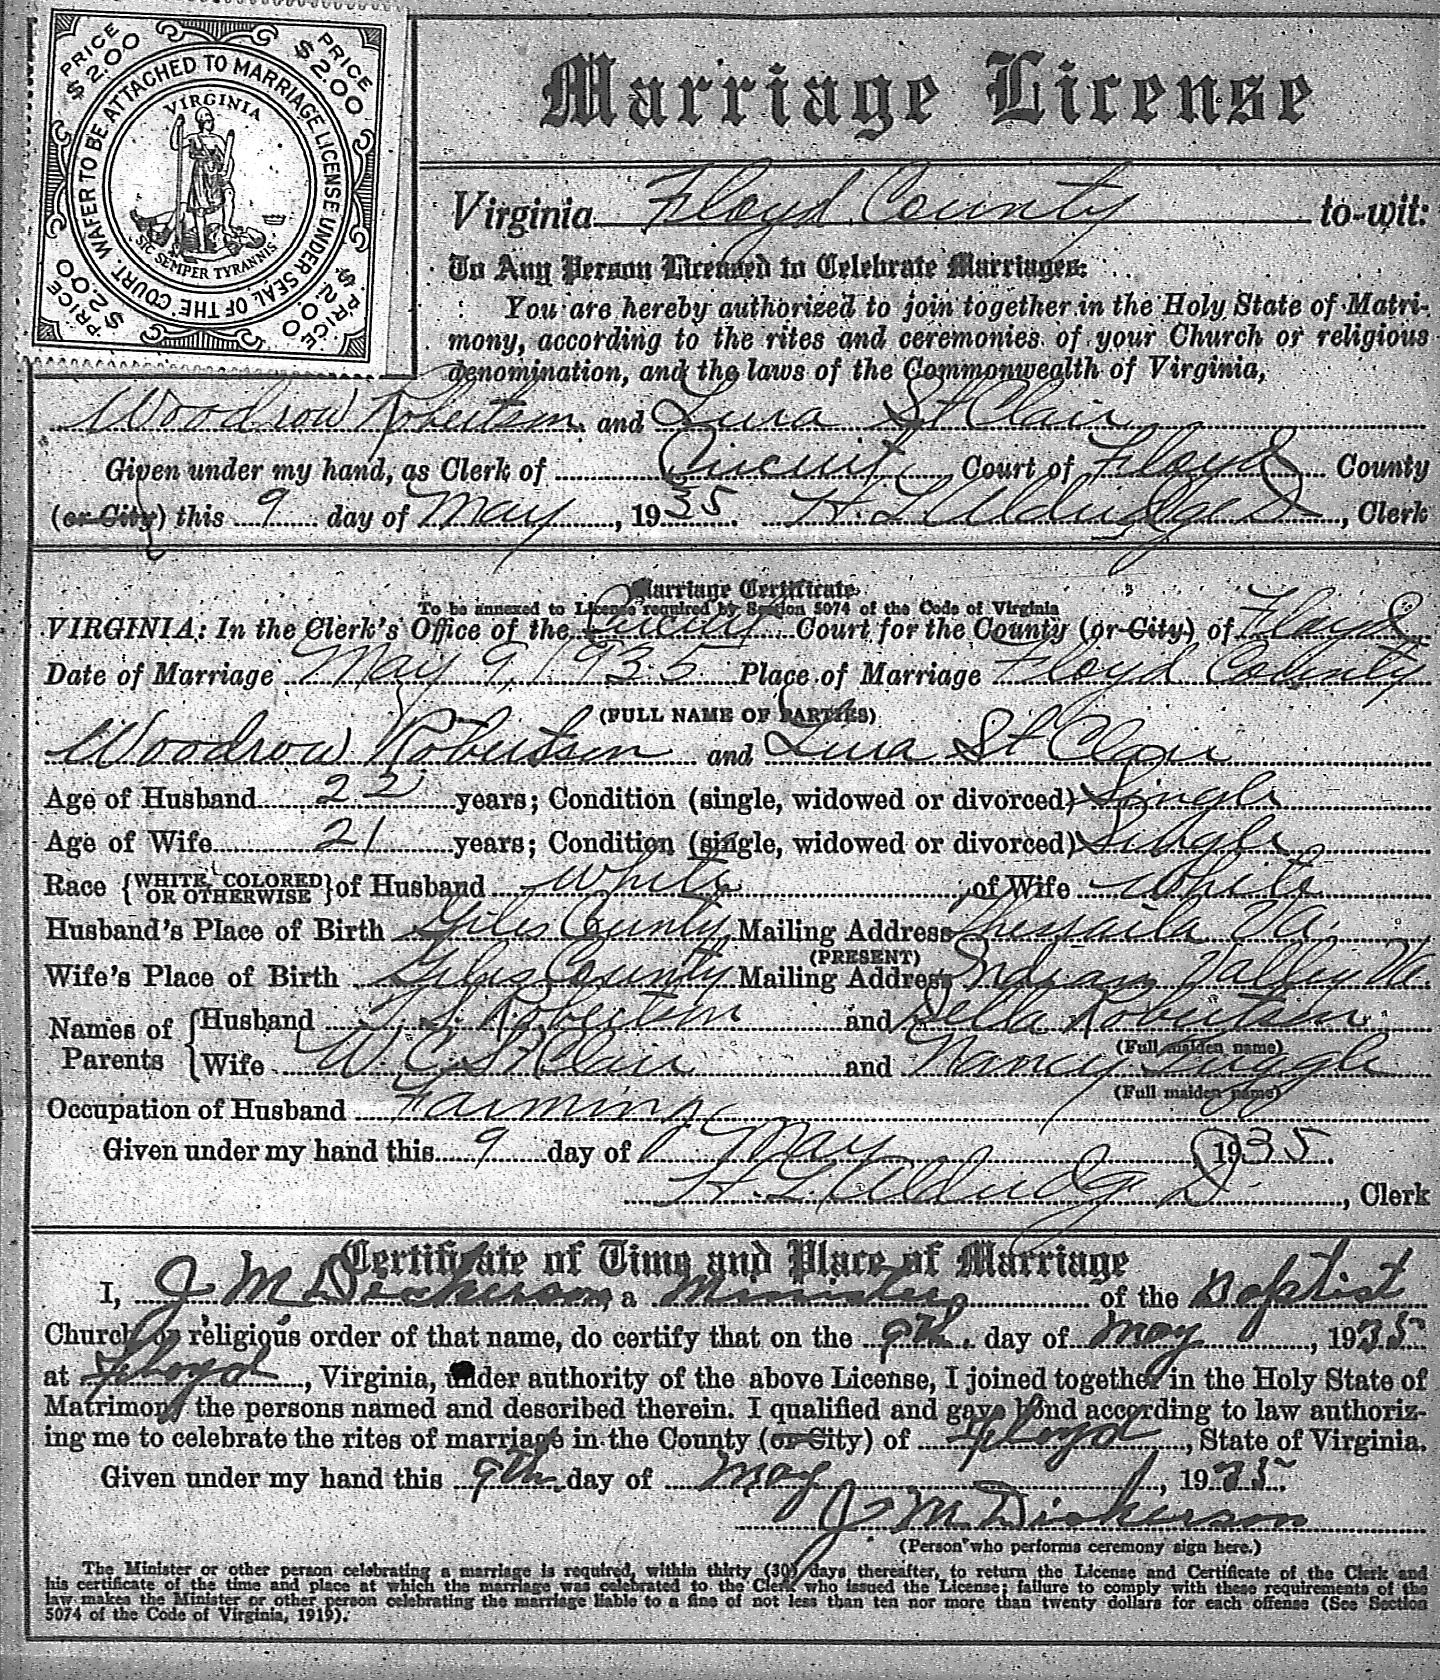 PRICE $2.00 PRICE $2.00
WAFER TO BE ATTACHED TO MARRIAGE LICENSE UNDER SEAL OF THE COURT.
VIRGINIA
SIC SEMPER TYRANNIS
PRICE $2.00 PRICE $2.00
Marriage License
Virginia Floyd County to-wit:
To Any Person Licensed to Celebrate Marriages:
You are hereby authorized to join together in the Holy State of Matri-
mony, according to the rites and ceremonies of your Church or religious
denomination, and the laws of the Commonwealth of Virginia,
Woodrow Robertson and Lura St Clair
Given under my hand, as Clerk of Circuit Court of Floyd County
(or City) this 9 day of May, 1935. H. L. Aldridge D, Clerk
Marriage Certificate
To be annexed to License required by Section 5074 of the Code of Virginia
VIRGINIA: In the Clerk's Office of the Circuit Court for the County (or City) of Floyd
Date of Marriage May 9, 1935 Place of Marriage Floyd County
(FULL NAME OF PARTIES)
Woodrow Robertson and Lura St Clair
Age of Husband 22 years; Condition (single, widowed or divorced) Single
Age of Wife 21 years; Condition (single, widowed or divorced) Single
Race {WHITE, COLORED OR OTHERWISE} of Husband White, of Wife White
Husband's Place of Birth Giles County Mailing Address Va.
(PRESENT)
Wife's Place of Birth Giles County Mailing Address Indian Valley Va.
Names of Parents {Husband Robertson and Della Robertson
(Full maiden name)
Wife W. C. St Clair and Nancy
(Full maiden name)
Occupation of Husband Farming
Given under my hand this 9 day of May 1935.
H. L. Aldridge D., Clerk
Certificate of Time and Place of Marriage
I, J M Dickerson, a Minister of the Baptist
Church or religious order of that name, do certify that on the 9th. day of May, 1935
at Floyd, Virginia, under authority of the above License, I joined together in the Holy State of
Matrimony the persons named and described therein. I qualified and gave bond according to law authoriz-
ing me to celebrate the rites of marriage in the County (or City) of Floyd, State of Virginia.
Given under my hand this 9th day of May, 1935.
J M Dickerson
(Person who performs ceremony sign here.)
The Minister or other person celebrating a marriage is required, within thirty (30) days thereafter, to return the License and Certificate of the Clerk and
his certificate of the time and place at which the marriage was celebrated to the Clerk who issued the License; failure to comply with these requirements of the
law makes the Minister or other person celebrating the marriage liable to a fine of not less than ten nor more than twenty dollars for each offense (See Section
5074 of the Code of Virginia, 1919).